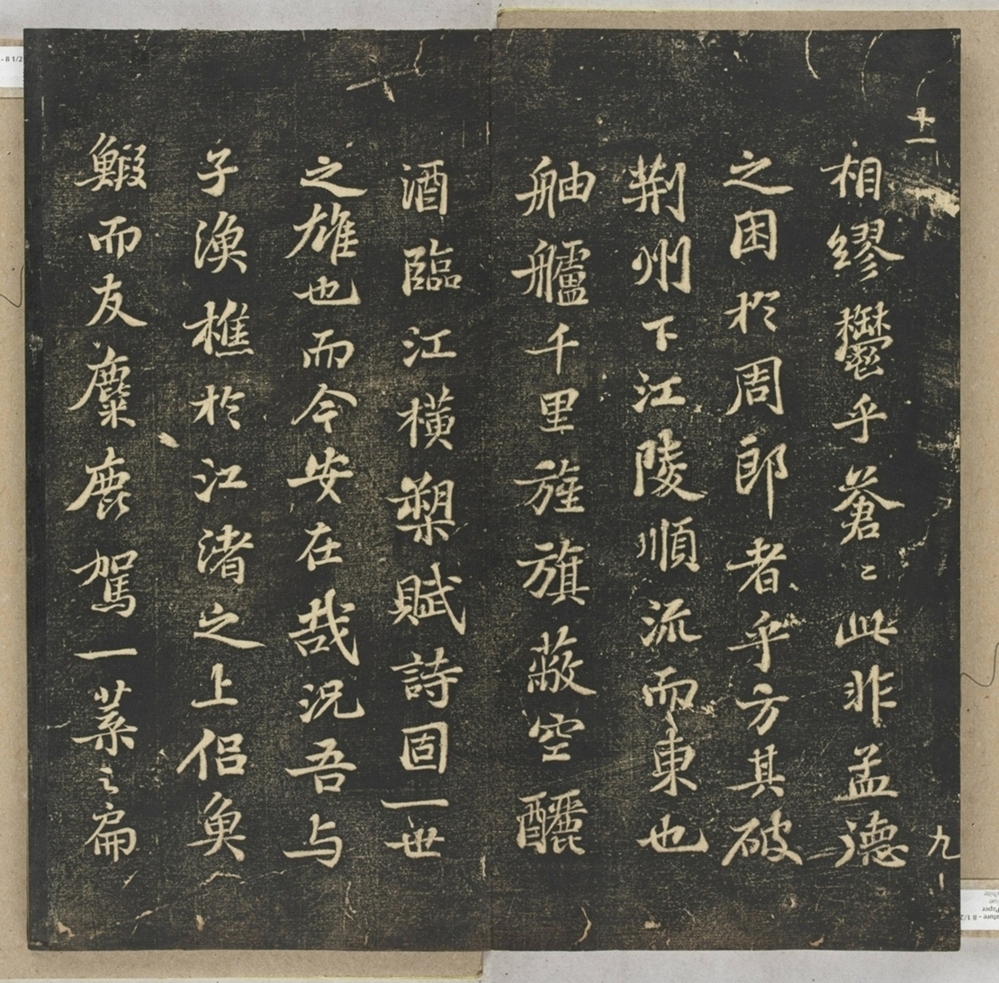 十一
九
相繆鬱乎蒼〻此非孟德
之困於周郎者乎方其破
荆州下江陵順流而東也
舳艫千里旌旗蔽空釃
酒臨江橫槊賦詩固一世
之雄也而今安在哉況吾与
子漁樵於江渚之上侶魚
鰕而友麋鹿駕一葉之扁
- 8 1/2